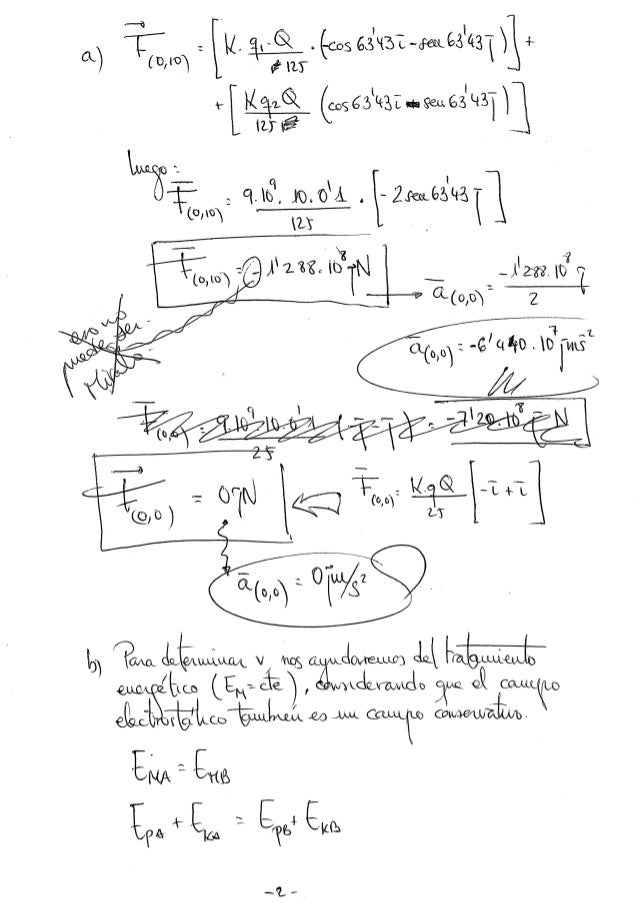 a) F(0,10) = [K·q₁·Q / 125 · (-cos 63'43 i - sen 63'43 j)] +
+ [K q₂ Q / 125 (cos 63'43 i - sen 63'43 j)]
luego:
F(0,10) = 9·10⁹·10·0'1 / 125 · [-2 sen 63'43 j]
F(0,10) = -1'288·10⁸ j N → a(0,0) = -1'288·10⁸ j / 2
a(0,0) = -6'440·10⁷ j m s⁻²
F(0,0) = 9·10⁹·10·0'1 / 25 = -7'20·10⁸ j N
F(0,0) = 0 j N ⇐ F(0,0) = K q Q / 25 [-i + i]
a(0,0) = 0 j m/s²
b) Para determinar v, nos ayudaremos del tratamiento
energético (E_M = cte), considerando que el campo
electrostático también es un campo conservativo.
E_MA = E_MB
E_PA + E_KA = E_PB + E_KB
-2-